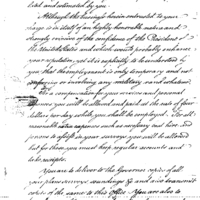 tated and intrusted by you
Although the
care is in itself of an highly honorable nature and
strongly evincive of the confidence of the President of
the United States and which will probably enhance
your reputation yet it is explicitly to be understood by
you that the employment is only temporary and no
wise as involving any military or
As a compensation for your services and personal
expences you will be allowed and paid at the rate of four
dollars per day while you shall be employed. For all
reasonable extra expences such as necessary hire and
persons to assist in your surveys you will be allowed
but for these you must keep regular accounts and
take receipts.
You are to deliver to the Governor copies of all
your plans surveys soundings &c and also transmit
copies of the same to this Office. You are also to